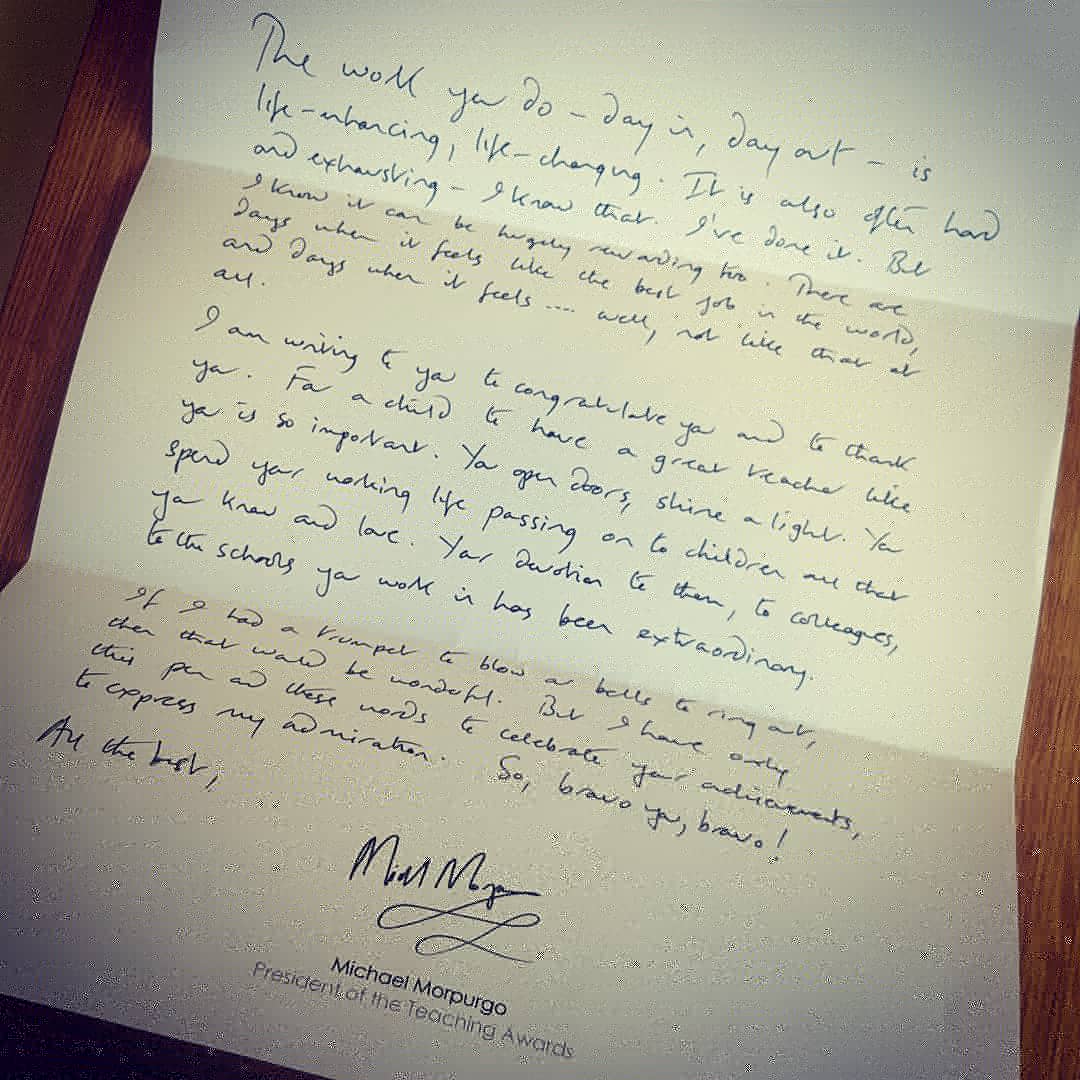 The work you do – day in, day out – is
life-enhancing, life-changing. It is also often hard
and exhausting – I know that. I've done it. But
I know it can be hugely rewarding too. There are
days when it feels like the best job in the world,
and days when it feels .... well, not like that at
all.
I am writing to you to congratulate you and to thank
you. For a child to have a great teacher like
you is so important. You open doors, shine a light. You
spend your working life passing on to children all that
you know and love. Your devotion to them, to colleagues,
to the schools you work in has been extraordinary.
If I had a trumpet to blow or bells to ring out,
then that would be wonderful. But I have only
this pen and these words to celebrate your achievements,
to express my admiration. So, bravo you, bravo!
All the best,
Michael Morpurgo
Michael Morpurgo
President of the Teaching Awards